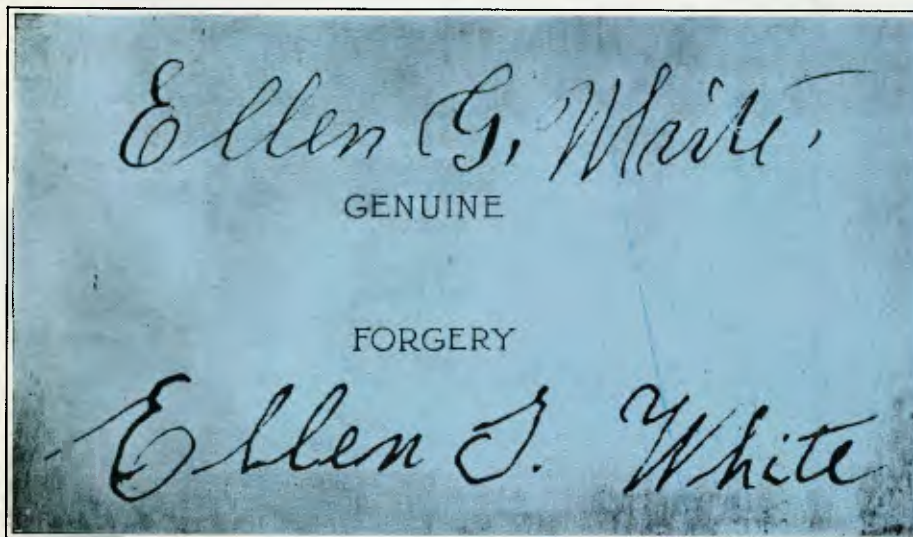 Ellen G. White.
GENUINE
FORGERY
Ellen G. White